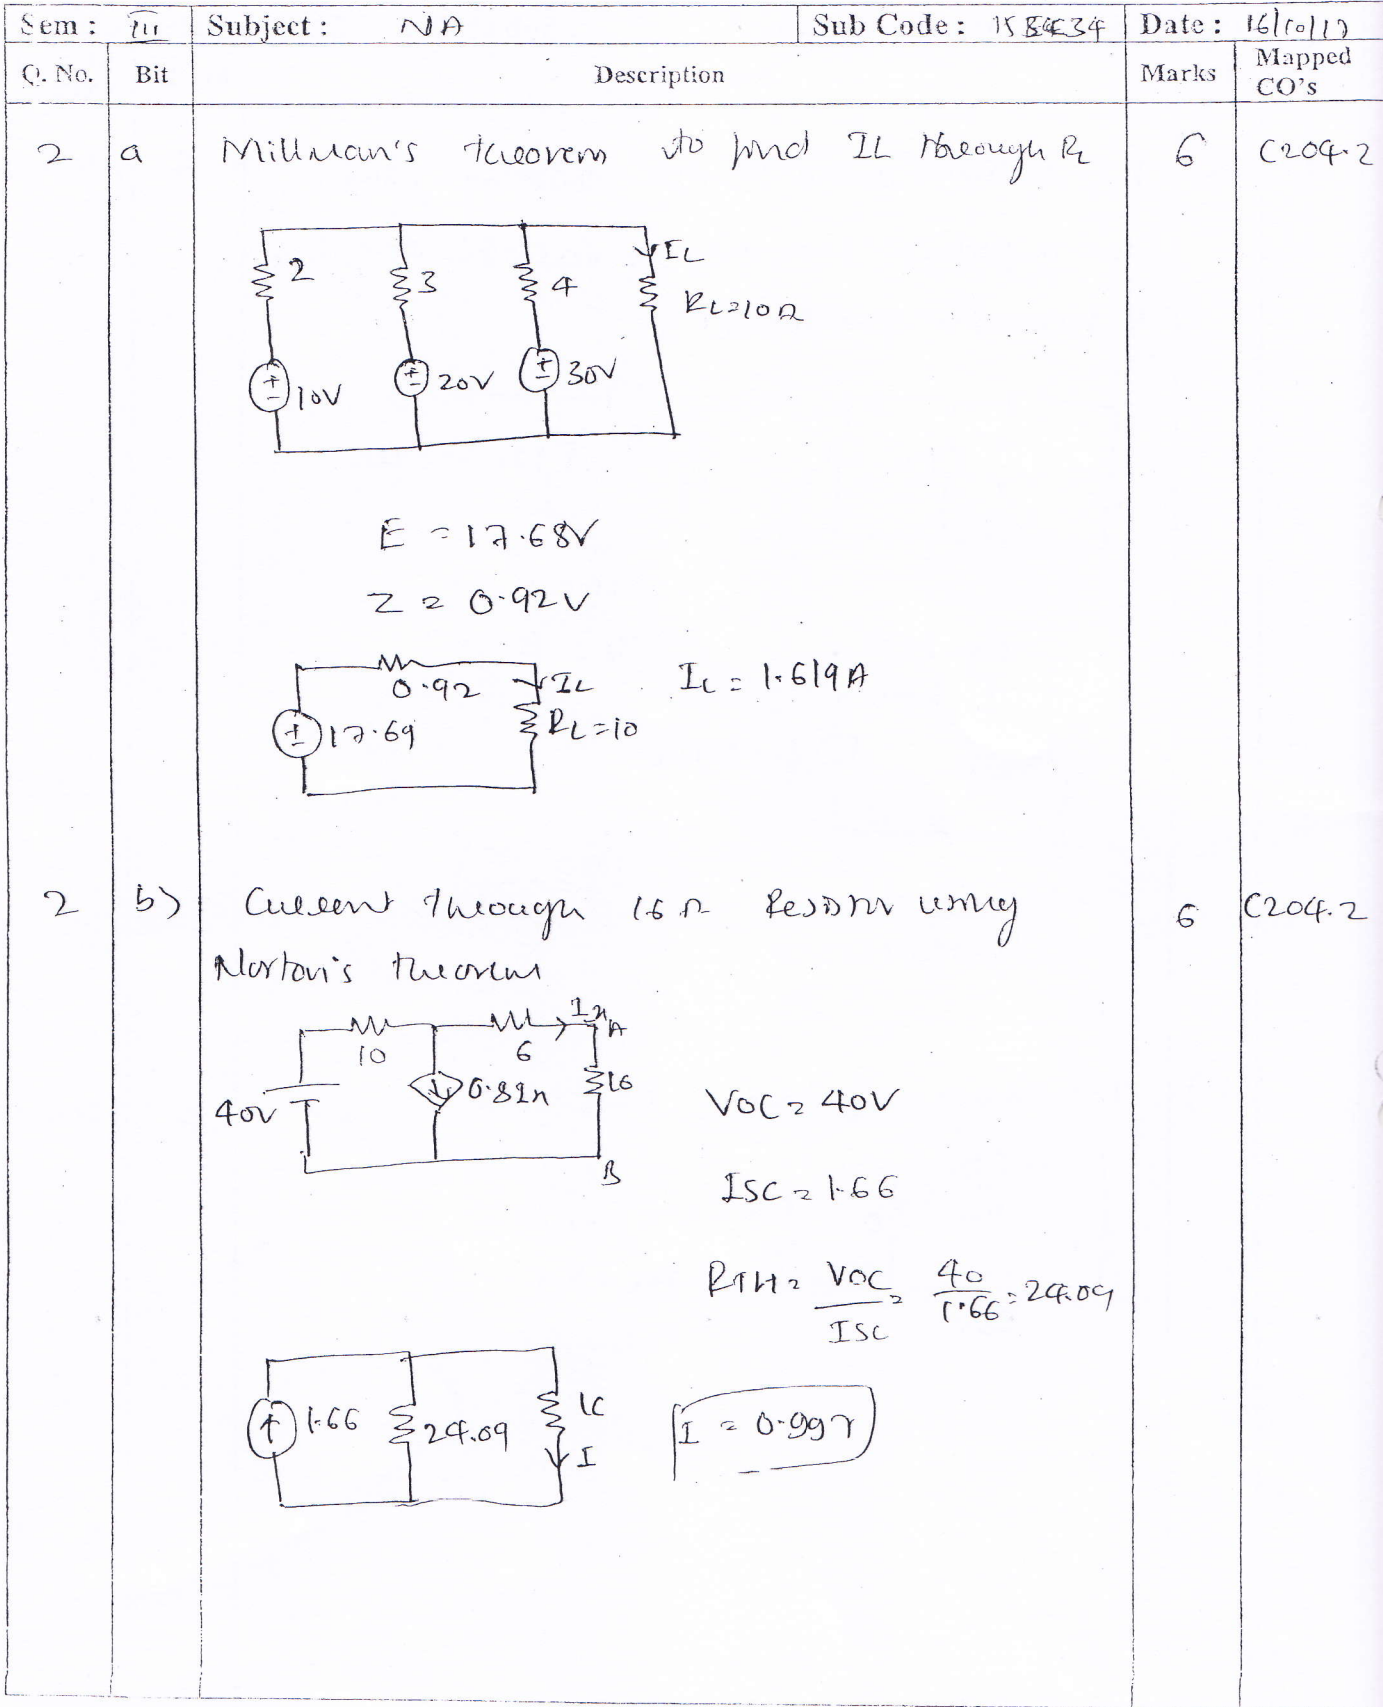 Sem : III Subject : NA Sub Code : Date : 16/10/17
Q. No. Bit Description Marks Mapped CO's
2 a Millman's theorem to find IL through RL 6 C204.2
2 3 4 IL
RL=10Ω
10V 20V 30V
E = 17.68V
Z = 0.92V
0.92 IL IL = 1.619A
17.69 RL=10
2 b) Current through 16Ω Resistor using 6 C204.2
Norton's theorem
10 6 Ix A
40V 0.8Ix 16 VOC = 40V
B
ISC = 1.66
RTH = VOC/ISC = 40/1.66 = 24.09
1.66 24.09 16 I
I = 0.997